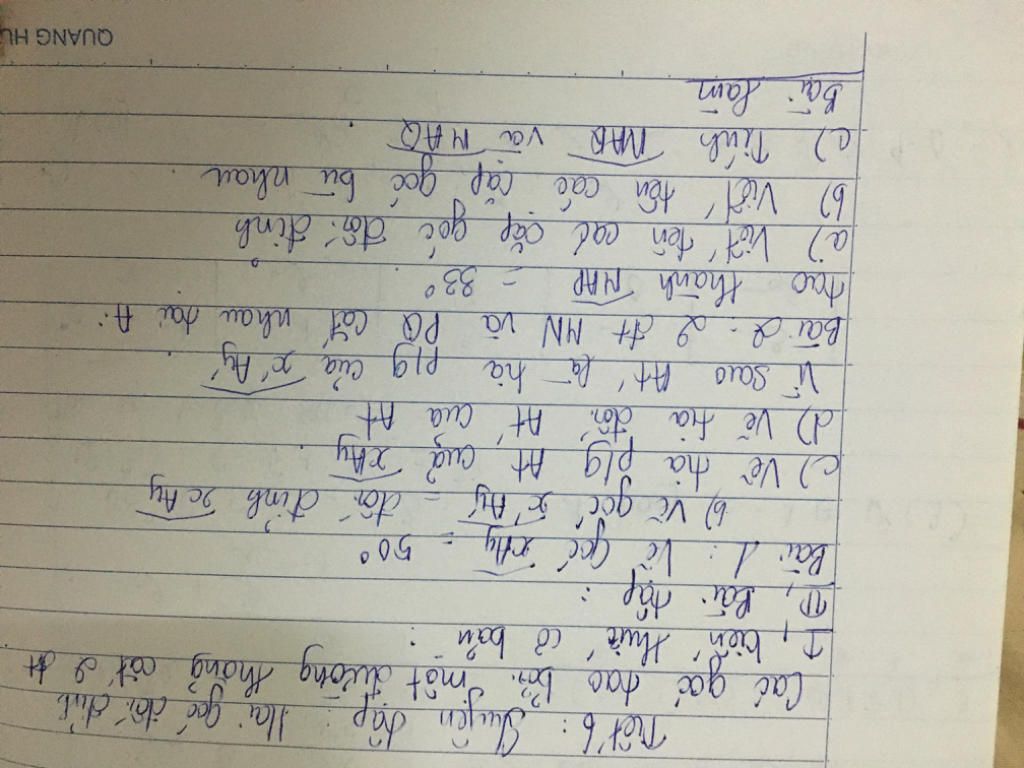 Tiết 6: Luyện tập: Hai góc đối đỉnh
Các góc tạo bởi một đường thẳng cắt 2 đt
I, kiến thức cơ bản:
II, Bài tập:
Bài 1: Vẽ góc xAy = 50°
b) Vẽ góc x'Ay' đối đỉnh xAy
c) Vẽ tia p/g At của xAy.
d) Vẽ tia đối At' của At
Vì sao At' là tia p/g của x'Ay'.
Bài 2: 2 đt MN và PQ cắt nhau tại A:
tạo thành MAP = 33°
a) Viết tên các cặp góc đối đỉnh
b) Viết tên các cặp góc bù nhau.
c) Tính NAQ và MAQ.
Bài làm
QUANG HƯ